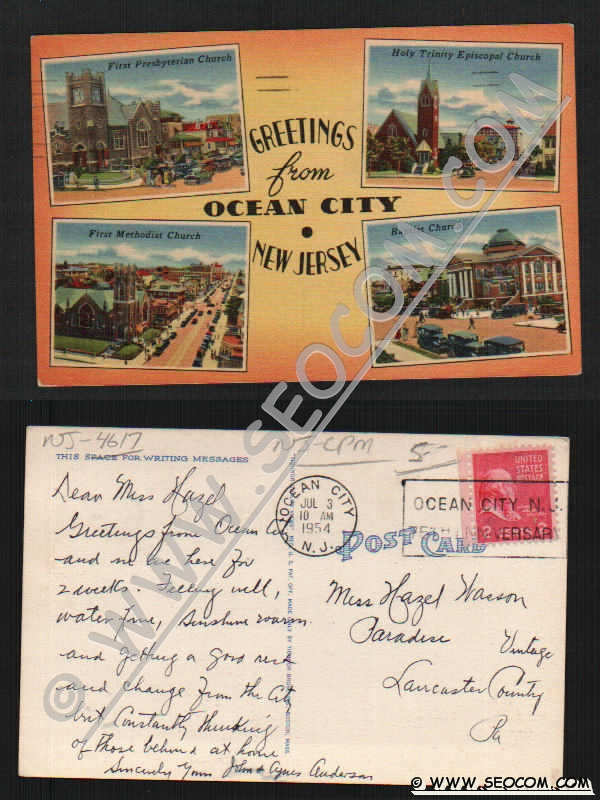 First Presbyterian Church
Holy Trinity Episcopal Church
GREETINGS
from
OCEAN CITY
NEW JERSEY
First Methodist Church
Baptist Church
WWW.SEOCOM.COM
NJ-4617
NJ-CPM
5-
THIS SPACE FOR WRITING MESSAGES
Dear Miss Hazel
Greetings from Ocean City
and we here for
2 weeks. Feeling well,
water fine, Sunshine warm
and getting a good rest
and change from the City
but Constantly thinking
of those behind at home
Sincerely Yours John & Agnes Anderson
OCEAN CITY
JUL 3
10 AM
1954
N.J.
OCEAN CITY N.J.
75TH ANNIVERSARY
UNITED
STATES
POSTAGE
POST CARD
Miss Hazel Wasson
Paradise
Vintage
Lancaster County
Pa
© WWW.SEOCOM.COM
© WWW.SEOCOM.COM